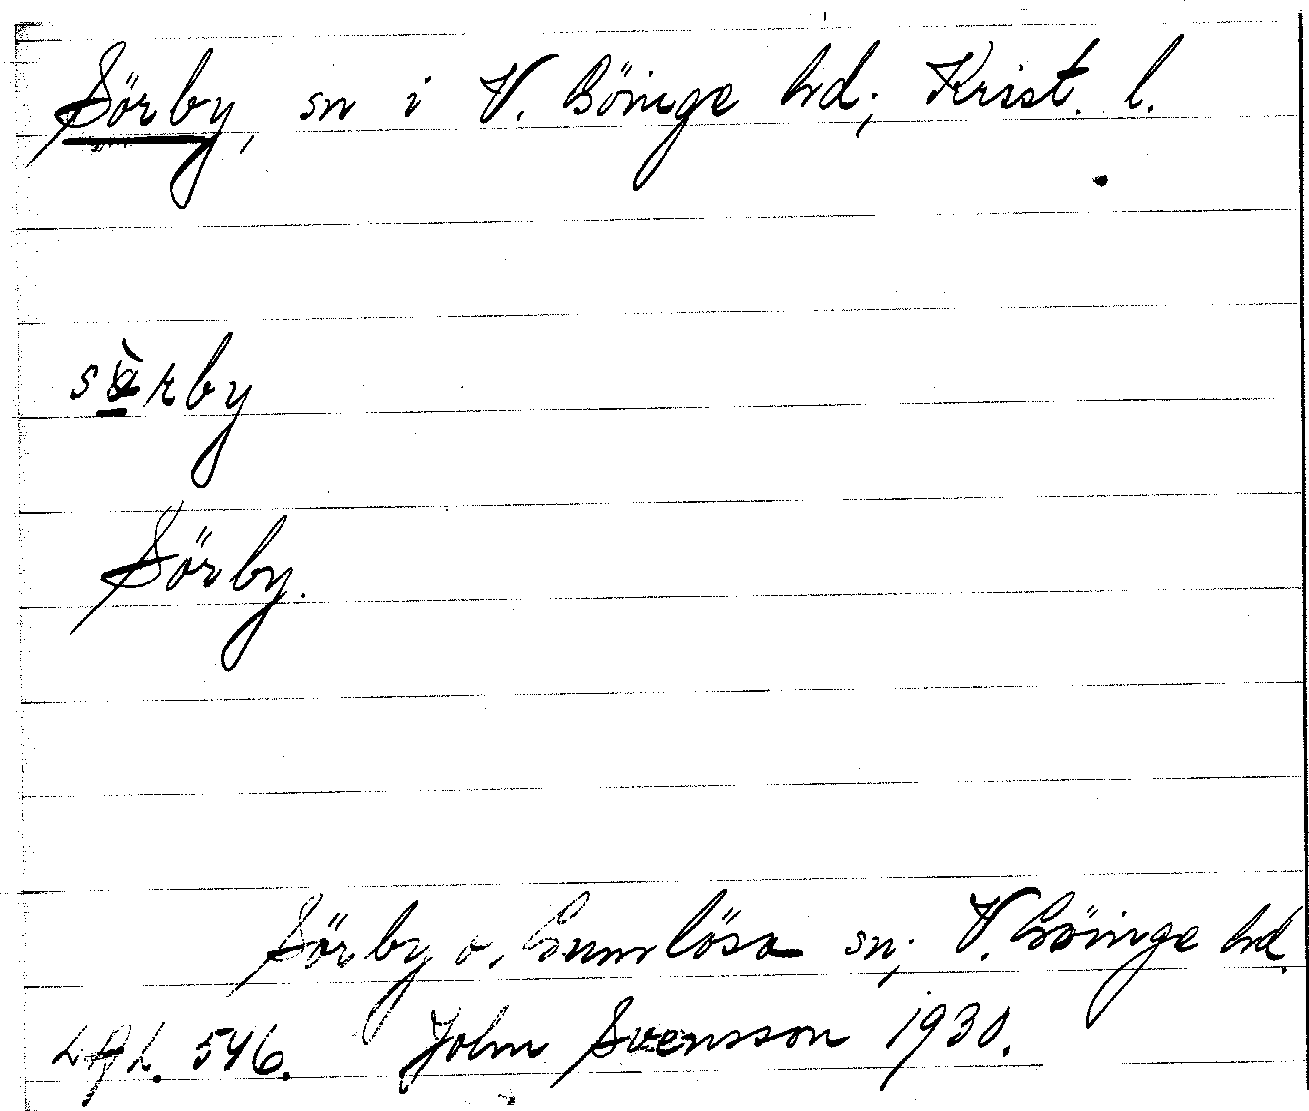 Sörby, sn i V. Göinge hd; Krist. l.
sœ̀rby
Sörby.
Sörby o. Gumlösa sn; V. Göinge hd.
LAL. 546. John Svensson 1930.